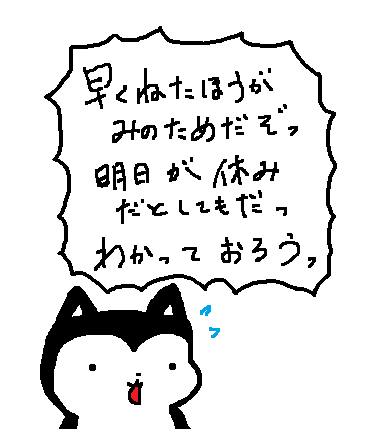 早くねたほうが
みのためだぞっ
明日が休み
だとしてもだっ
わかっておろうっ